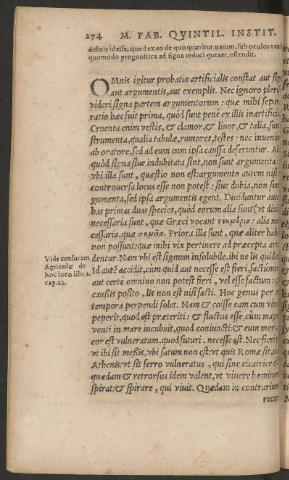 274 M. FAB. QVINTIL. INSTIT.
desinit id esse, quod ex eo de quo quæritur natum, sub oculos
quomodo prognostica ad signa reduci queant, ostendit.
OMnis igitur probatio artificialis constat aut
aut argumentis, aut exemplis. Nec ignoro
videri signa partem argumentorum: quæ mihi
ratio hæc fuit prima, quòd sunt penè ex illis inartifici
Cruenta enim vestis, & clamor, & livor, & talia, sun
strumenta, qualia tabulæ, rumores, testes: nec
ab oratore, sed ad eum cum ipsa causa deferuntur.
quòd signa sive indubitata sint, non sunt argumenta:
vbi illa sunt, quæstio non est: argumento autem nisi
controversa locus esse non potest: sive dubia, non
gumenta, sed ipsa argumentis egent. Dividuntur
has primas duas species, quòd eorum alia sunt
necessaria sunt, quæ Græci vocant τεκμήρια: alia
cessaria, quæ σημεῖα. Priora illa sunt, quæ aliter
non possunt: quæ mihi vix pertinere ad præcepta
Vide censuram
Agricolæ de
hoc loco lib. 2.
cap. 22.
dentur. Nam vbi est signum insolubile, ibi ne lis quidem
Id autē accidit, cùm quid aut necesse est fieri,
aut certè omnino non potest fieri, vel esse factum:
caußis posito, lis non est nisi facti. Hoc genus per
tempora perpendi solet. Nam & coisse eam cum viro
peperit, quod est præteriti: & fluctus esse, cùm
venti in mare incubuit, quod coniuncti: & eum mori
cor est vulneratum, quod futuri. necesse est. Nec fieri
vt ibi sit messis, vbi satum non est: vt quis Romæ sit,
Athenis: vt sit ferro vulneratus, qui sine cicatrice
quædam & retrorsus idem valent, vt vivere hominem
spirat: & spirare, qui vivit. Quædam in contrarium